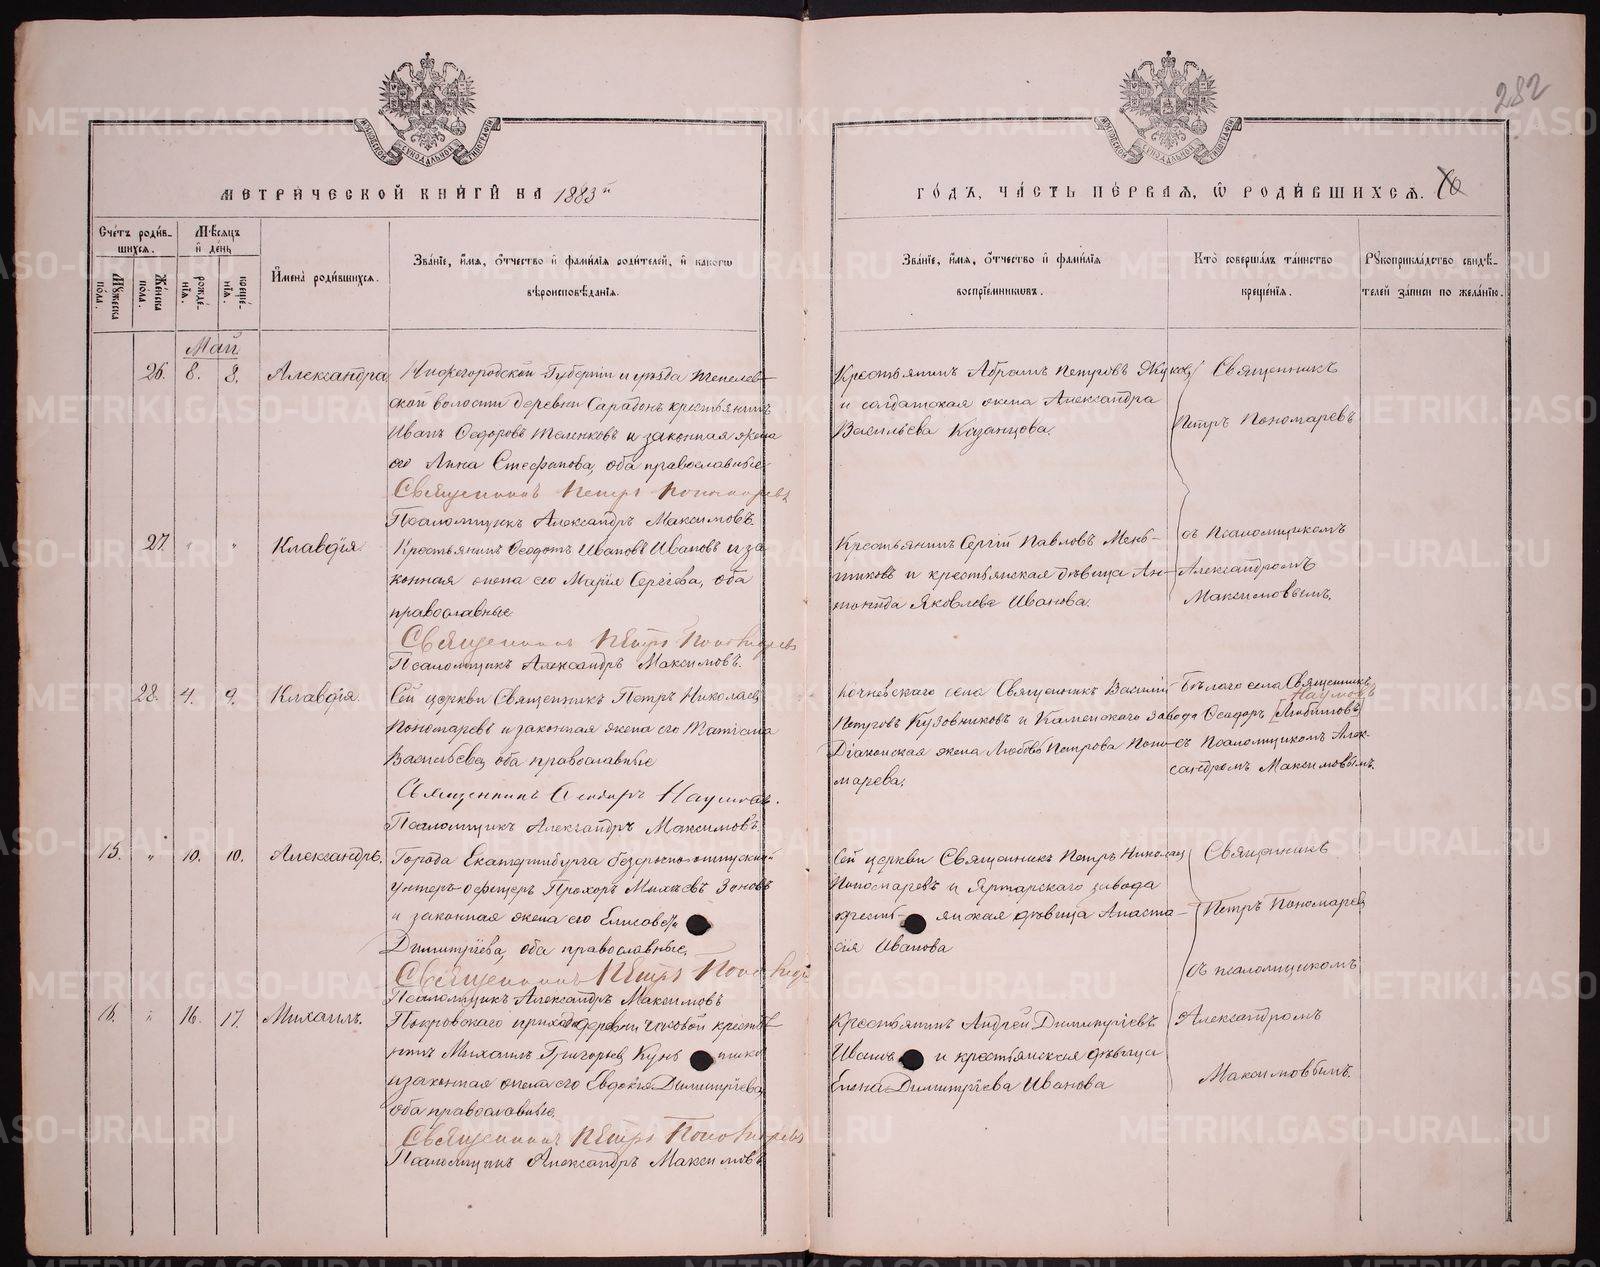 282
МЕТРИЧЕСКОЙ КНИГИ НА 1883й
ГОДЪ, ЧАСТЬ ПЕРВАЯ, Ѡ РОДИВШИХСЯ.
Счетъ родив-
шихся.
Мѣсяцъ
и день
Мужеска
пола.
Женска
пола.
рожде-
нія.
креще-
нія.
Имена родившихся.
Званіе, имя, отчество и фамилія родителей, и какогω
вѣроисповѣданія.
Званіе, имя, отчество и фамилія
воспріемникωвъ.
Кто совершалъ таинство
крещенія.
Рукоприкладство свидѣ-
телей записи по желанію.
Май
26. 8. 8. Александра
Нижегородской Губерніи и уѣзда
ской волости деревни крестьянинъ
Иванъ Ѳедоровъ и законная жена
его Анна Стефанова, оба православные
Священникъ Петръ Пономаревъ
Псаломщикъ Александръ Максимовъ.
Крестьянинъ Абрамъ Петровъ
и солдатская жена Александра
Васильева Казанцова.
Священникъ
Петръ Пономаревъ
27. " " Клавдія.
Крестьянинъ Ѳеодотъ Ивановъ Ивановъ и за
конная жена его Марія Сергіева, оба
православные
Священникъ Петръ Пономаревъ
Псаломщикъ Александръ Максимовъ.
Крестьянинъ Сергій Павловъ Мень-
шиковъ и крестьянская дѣвица Ан-
тонида Яковлева Иванова.
съ Псаломщикомъ
Александромъ
Максимовымъ.
28. 4. 9. Клавдія.
Сей церкви Священникъ Петръ Николаевъ
Пономаревъ и законная жена его Татіана
Васильева, оба православные
Священникъ Ѳеодоръ Наумовъ.
Псаломщикъ Александръ Максимовъ.
Кочневскаго села Священникъ Василій
Петровъ Кузовниковъ и Каменскаго завода
Діаконская жена Любовь Петрова Поно-
марева.
Бѣлаго села Священникъ
Наумовъ
Ѳеодоръ [Любимовъ]
съ Псаломщикомъ Алек-
сандромъ Максимовымъ.
15. " 10. 10. Александръ.
Города Екатеринбурга безсрочно-отпускной
унтеръ-офицеръ Прохоръ Михѣевъ Зоновъ
и законная жена его Елисавета
Димитріева, оба православные.
Священникъ Петръ Пономаревъ
Псаломщикъ Александръ Максимовъ
Сей церкви Священникъ Петръ Николаевъ
Пономаревъ и завода
крестьянская дѣвица Анаста-
сія Иванова
Священникъ
Петръ Пономаревъ
съ псаломщикомъ
16. " 16. 17. Михаилъ.
Покровскаго прихода деревни крестья
нинъ Михаилъ Григорьевъ
и законная жена его Евдокія Димитріева,
оба православные.
Священникъ Петръ Пономаревъ
Псаломщикъ Александръ Максимовъ
Крестьянинъ Андрей Димитріевъ
Ивановъ и крестьянская дѣвица
Елена Димитріева Иванова
Александромъ
Максимовымъ.